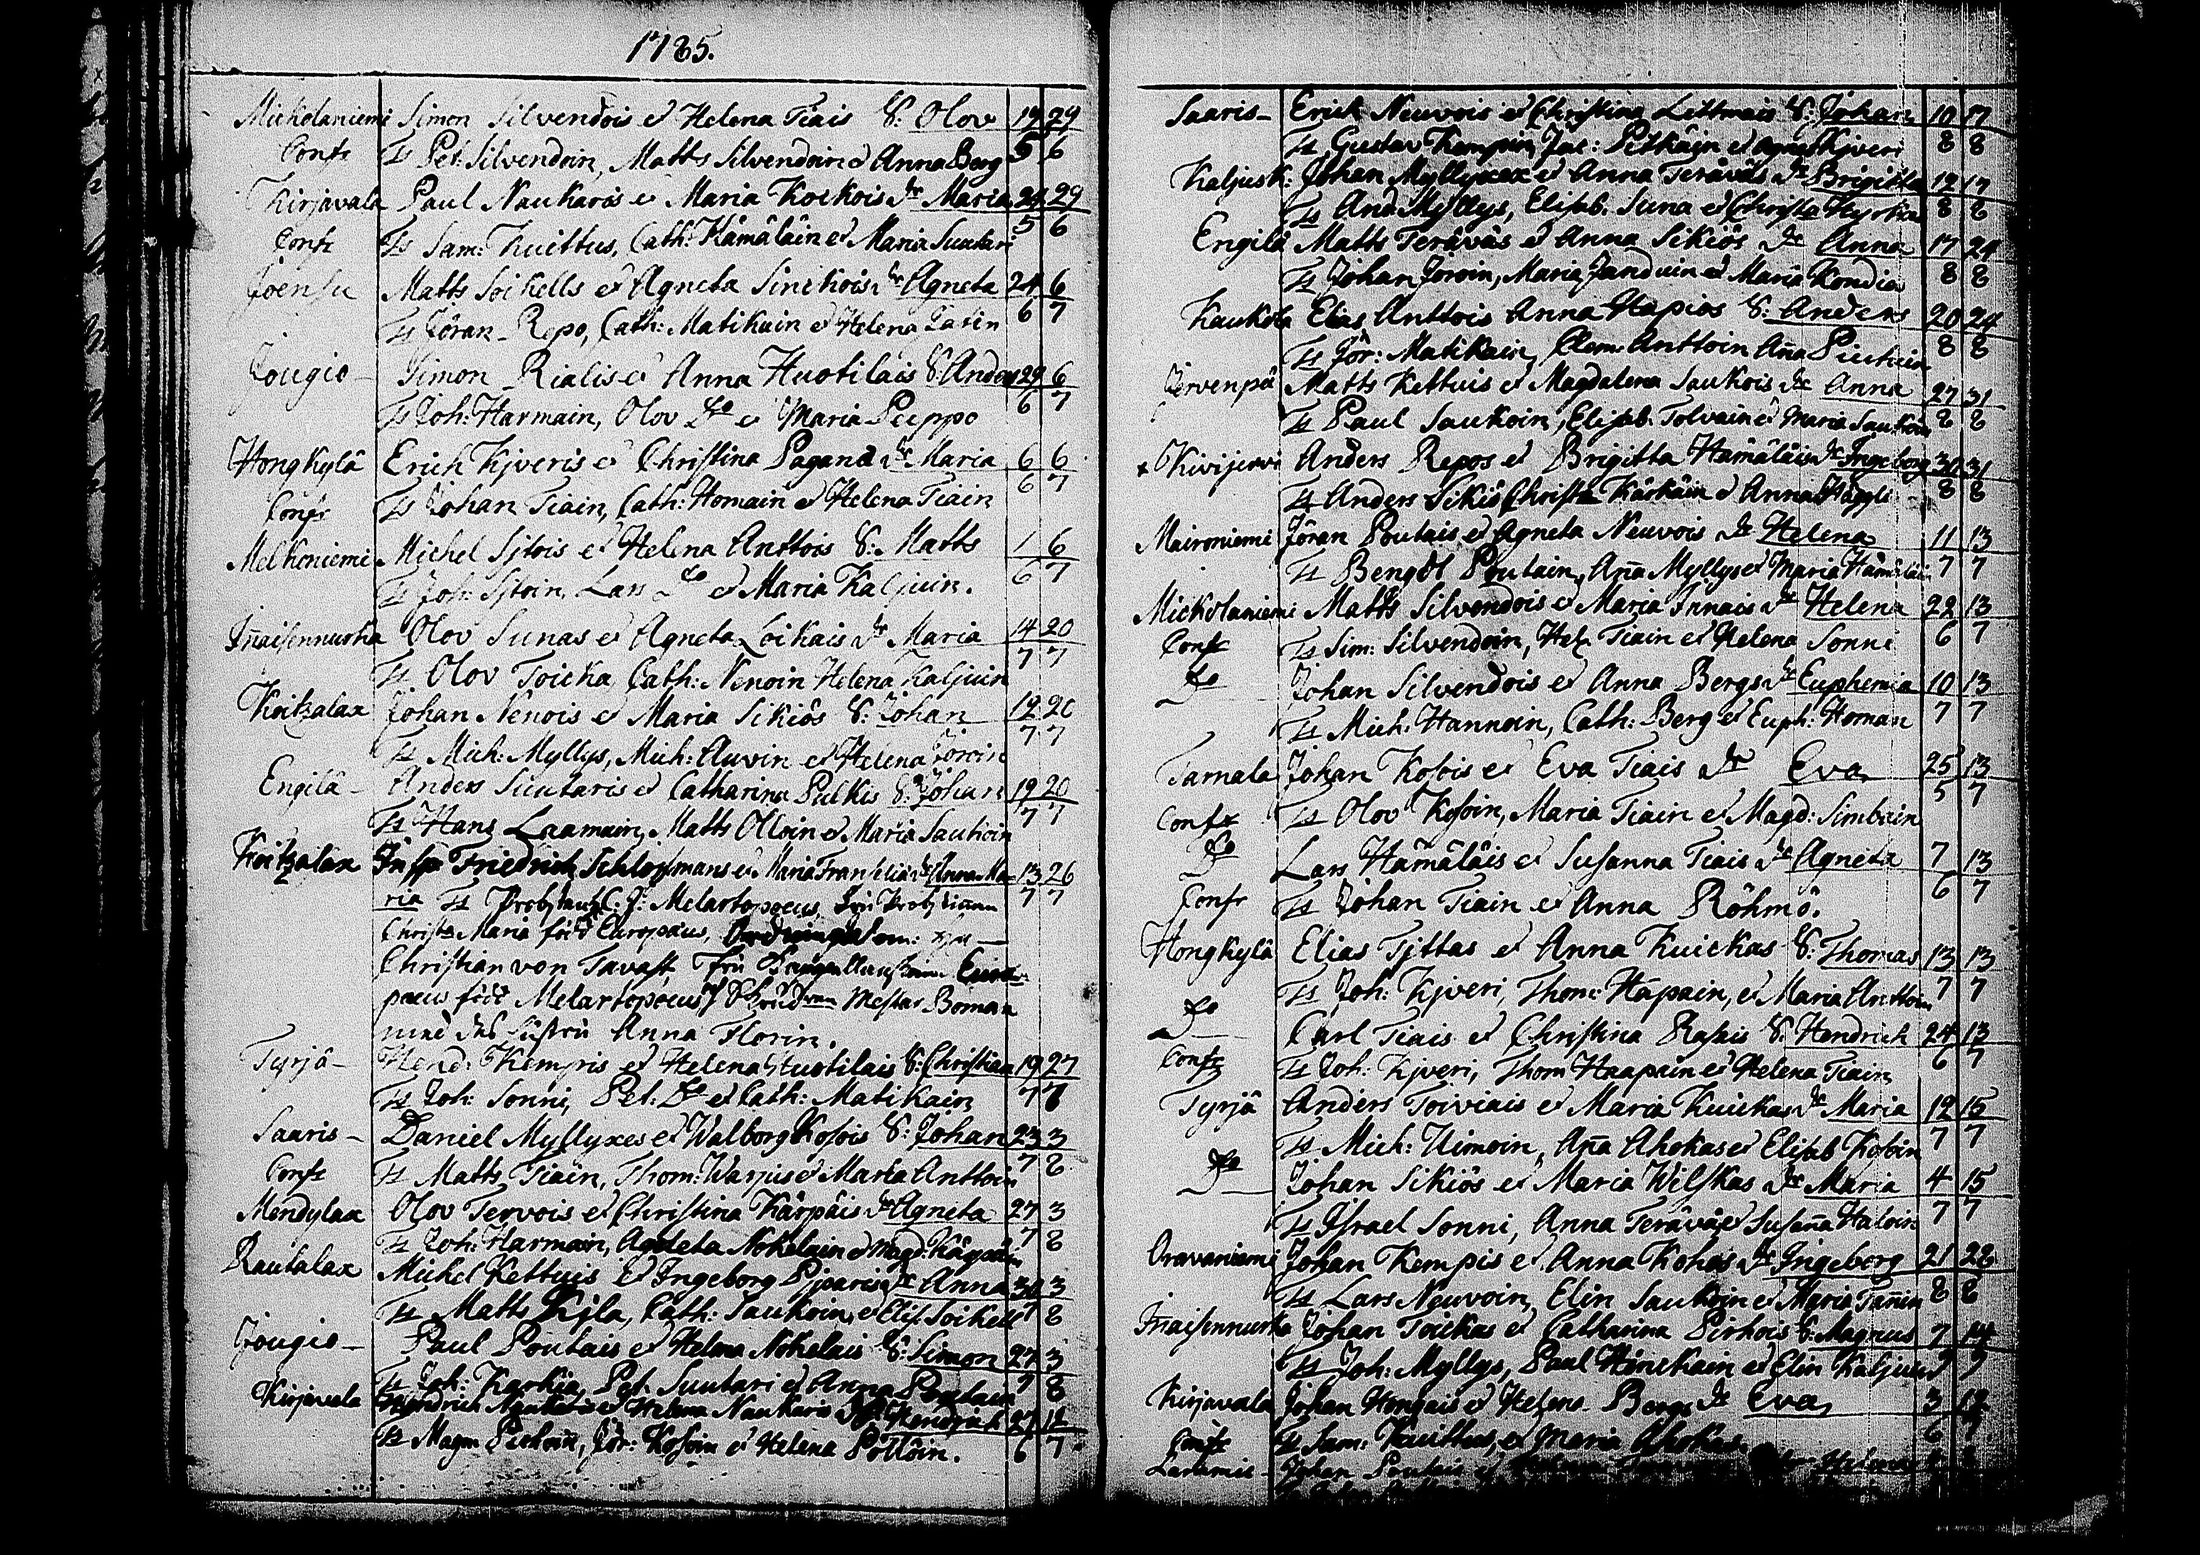 1785.
Mickolaniemi Simon Silvendois et Helena Tiais S: Olov 19 29
Confr Ts Pet: Silvendoin, Matts Silvendoin et Anna Berg 5 6
Kirjavala Paul Naukaris et Maria Kockois dr Maria 24 29
Confr Ts Sam: Kuittus, Cath: Hämäläin et Maria Suutari 5 6
Joensu Matts Soikells et Agneta Sinckois dr Agneta 24 6
Ts Jöran Repo, Cath: Matikain et Helena 6 7
Jougio Simon Rialis et Anna Huotilais S: Anders 29 6
Ts Joh: Harmain, Olov Do et Maria Peippo 6 7
Hongkylä Erich Kjveris et Christina Pagana dr Maria 6 6
Confr Ts Johan Tiain, Cath: Homain et Helena Tiain 6 7
Melkoniemi Michel Sjtois et Helena Anttois S: Matts 1 6
Ts Joh: Sjtoin, Lars Do et Maria Kaljuin. 6 7
Inaisennurka Olov Sunas et Agneta Loikais dr Maria 14 20
Ts Olov Toicka, Cath: Nenoin Helena Kaljuin 7 7
Koitzalax Johan Nenois et Maria Sikiös S: Johan 12 20
Ts Mich: Myllys, Mich: Auvin et Helena Joroin 7 7
Engilä Anders Suutaris et Catharina Pulkis S: Johan 19 20
Ts Hans Laamain, Matts Olloin et Maria Saukoin 7 7
Koitzalax Friedrich Schlossmans et Maria dr Anna Ma- 13 26
ria Ts C. J: Melartopoeus, 7 7
Christ. Maria född Europaeus,
Christian von Tavast Fru Euro-
paeus född Melartopoeus, Boman
Anna Florin.
Tyrjä Hend: Kempis et Helena Huotilais S: Christian 19 27
Ts Joh: Sonni, Pet: Do et Cath: Matikain 7 7
Saaris Daniel Myllyxes et Walborg Kosois S: Johan 23 3
Confr Ts Matts Tiain, Thom: Warpus et Maria Anttoin 7 8
Mendylax Olov Tervois et Christina Kärpäis dr Agneta 27 3
Ts Joh: Harmain, Agneta Nokelain et Magd: 7 8
Rautalax Michel Kettuis et Ingeborg Pjparis dr Anna 30 3
Ts Matts Kjla, Cath: Saukoin, et Elis. Soickell 7 8
Jougio Paul Poutais et Helena Nokelais S: Simon 27 3
Ts Joh: Karkia, Pet. Suutari et Anna Poutain 7 8
Kirjavala Hendrich Naukaris et Helena Naukaris S: Hendrich 27 12
Ts Magn Pickoin, Jör: Kosoin et Helena Pöllöin. 6 7
Saaris Erich Neuvois et Christina Lettmais S: Johan 10 17
Ts Gustav Kempin, Jac: Pitkäin et Agnet Kjveri 8 8
Kaljusk: Johan Myllyxes et Anna Teräväs dr Brigitta 12 17
Ts And: Myllys, Elisab. Suna et Christ: Kyrkia 8 8
Engilä Matts Teräväs et Anna Sikiös dr Anna 17 24
Ts Johan Joroin, Maria Janduin et Maria Kondia 8 8
Kaukola Elias Anttois Anna Hapios S: Anders 20 24
Ts Jör: Matikain, Clem: Anttoin Aña 8 8
Jervenpä Matts Kettuis et Magdalena Saukois dr Anna 27 31
Ts Paul Saukoin, Elisab. Tolvain et Maria Saukoin 8 8
Kivijervi Anders Repos et Brigitta Hämäläis dr Ingeborg 30 31
Ts Anders Sikiö Christ: Kärkäin et Anna 8 8
Maironiemi Jöran Poutais et Agneta Neuvois dr Helena 11 13
Ts Bengdt Poutain, Aña Myllys et Maria Hämäläin 7 7
Mickolaniemi Matts Silvendois et Maria Innais dr Helena 22 13
Confr Ts Sim: Silvendoin, Hel. Tiain et Helena Sonni 6 7
Do Johan Silvendois et Anna Bergs dr Euphemia 10 13
Ts Mich: Hannoin, Cath: Berg et Euph: Homan 7 7
Tamala Johan Kosois et Eva Tiais dr Eva 25 13
Confr Ts Olov Kosoin, Maria Tiain et Magd: Simbain 5 7
Do Lars Hämäläis et Susanna Tiais dr Agneta 7 13
Confr Ts Johan Tiain et Anna Röhmö. 6 7
Hongkylä Elias Tjttas et Anna Kuickas S: Thomas 13 13
Ts Joh: Kjveri, Thom: Hapain, et Maria Anttoin 7 7
Do Carl Tiais et Christina Rasais S: Hendrich 24 13
Confr Ts Joh: Kjveri, Thom Haapain et Helena Tiain 6 7
Tyrjä Anders Toiviais et Maria Kuickas dr Maria 12 15
Ts Mich: Uimoin, Aña Ahokas et Elisab Kosoin 7 7
Do Johan Sikiös et Maria Wilskas dr Maria 4 15
Ts Israel Sonni, Anna Terävä et Susaña Haloin 7 7
Oravaniemi Johan Kempis et Anna Kohos dr Ingeborg 21 28
Ts Lars Neuvoin, Elin Saukoin et Maria Tañin 8 8
Inaisennurka Johan Toickas et Catharina Pirhois S: Magnus 7 14
Ts Joh: Myllys, Paul Hinckain et Elin Kaljuin 9 9
Kirjavala Johan Honkais et Helena Bergs dr Eva 3 12
Confr Ts Sam: Kuittus, et Maria Ahokas. 6 7
Johan Poutais et Helena